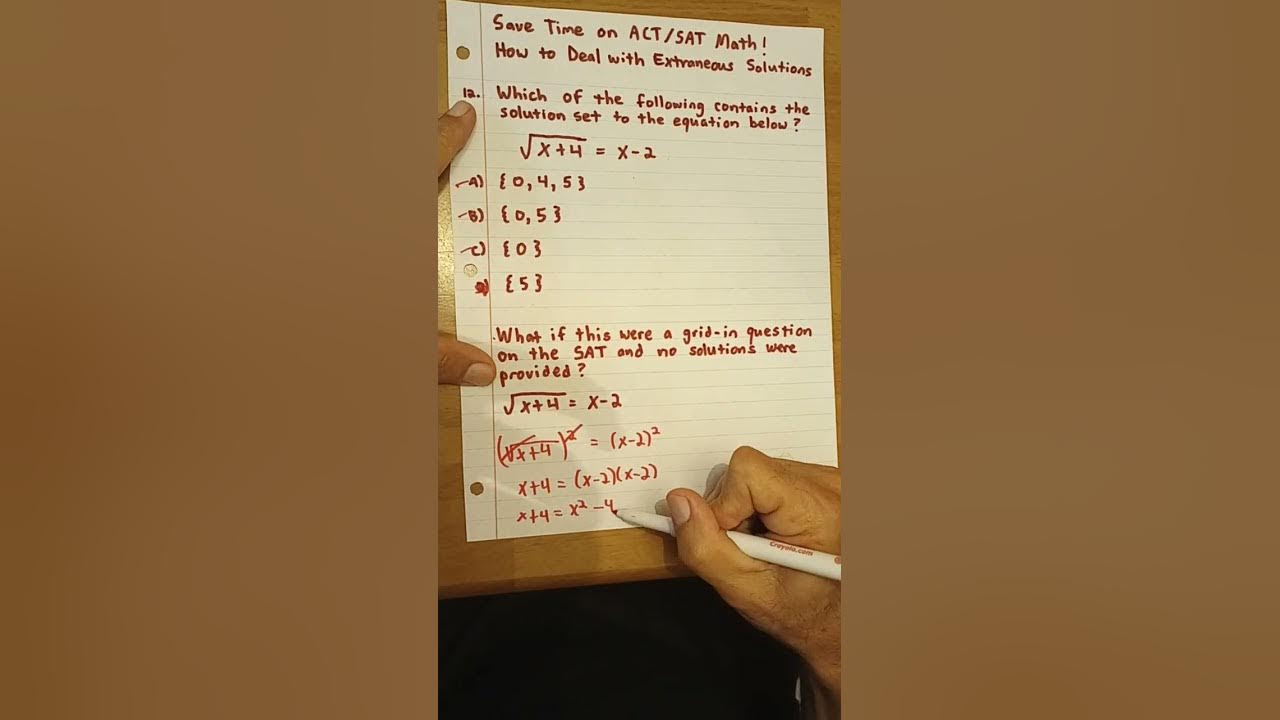 Save Time on ACT/SAT Math!
How to Deal with Extraneous Solutions
12. Which of the following contains the
solution set to the equation below?
√x+4 = x-2
A) {0, 4, 5}
B) {0, 5}
C) {0}
{5}
What if this were a grid-in question
on the SAT and no solutions were
provided?
√x+4 = x-2
(√x+4)² = (x-2)²
x+4 = (x-2)(x-2)
x+4 = x² -4
Crayola.com